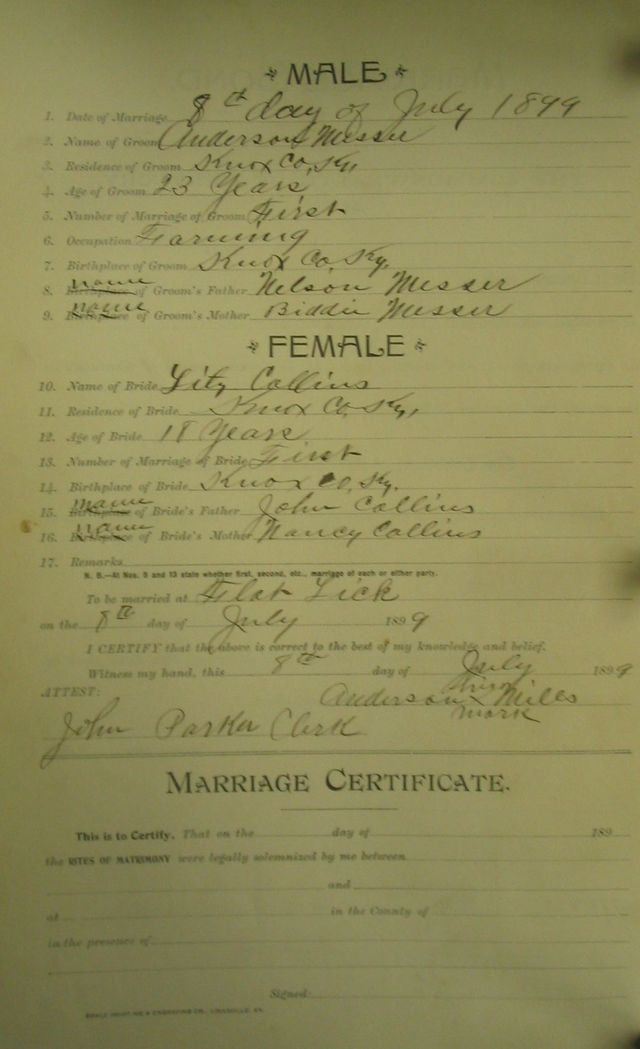 MALE
1. Date of Marriage 8th day of July 1899
2. Name of Groom Anderson Messer
3. Residence of Groom Knox Co, Ky,
4. Age of Groom 23 Years
5. Number of Marriage of Groom First
6. Occupation Farming
7. Birthplace of Groom Knox Co, Ky,
8. Birthplace name of Groom's Father Nelson Messer
9. Birthplace name of Groom's Mother Biddie Messer
FEMALE
10. Name of Bride Collins
11. Residence of Bride Knox Co, Ky,
12. Age of Bride 18 Years
13. Number of Marriage of Bride First
14. Birthplace of Bride Knox Co, Ky.
15. Birthplace name of Bride's Father John Collins
16. Birthplace name of Bride's Mother Nancy Collins
17. Remarks
N. B.—At Nos. 5 and 13 state whether first, second, etc., marriage of each or either party.
To be married at Flat Lick
on the 8th day of July 1899
I CERTIFY that the above is correct to the best of my knowledge and belief.
Witness my hand, this 8th day of July 1899
ATTEST: Anderson his x mark Mills
John Parker Clerk
MARRIAGE CERTIFICATE.
This is to Certify, That on the day of 189
the RITES OF MATRIMONY were legally solemnized by me between
and
at in the County of
in the presence of
Signed: